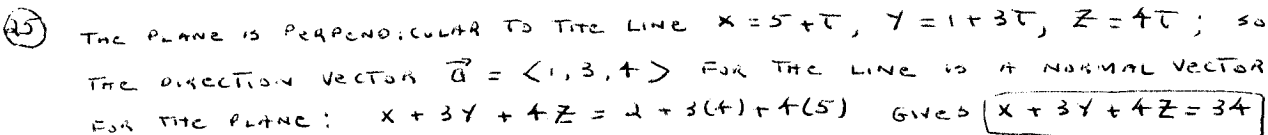 25 THE PLANE IS PERPENDICULAR TO THE LINE X = 5 + T, Y = 1 + 3T, Z = 4T; SO
THE DIRECTION VECTOR a⃗ = <1, 3, 4> FOR THE LINE IS A NORMAL VECTOR
FOR THE PLANE: X + 3Y + 4Z = 2 + 3(4) + 4(5) GIVES X + 3Y + 4Z = 34